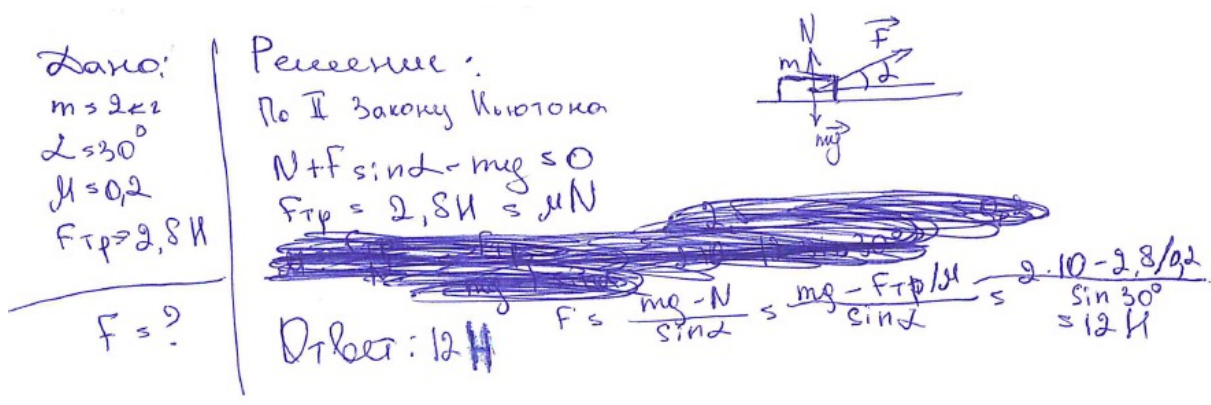 Дано:
m = 2кг
α = 30°
μ = 0,2
Fтр = 2,8 Н
F = ?
Решение:
По II Закону Ньютона
N + F sinα - mg = 0
Fтр = 2,8Н = μN
F = (mg - N)/sinα = (mg - Fтр/μ)/sinα = (2·10 - 2,8/0,2)/sin 30°
= 12 Н
Ответ: 12 Н
N F
m α
mg